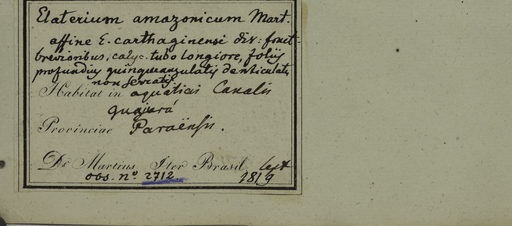 Elaterium amazonicum Mart.
affine E. carthaginensi div: fruct.
brevioribus, calyc. tubo longiore, foliis
profundius quinqueangulatis denticulatis
non serratis
Habitat in aquaticis Canalis
Provinciae Paraënsis.
Dr. Martius Iter Brasil.
obs. nº 2712 1819